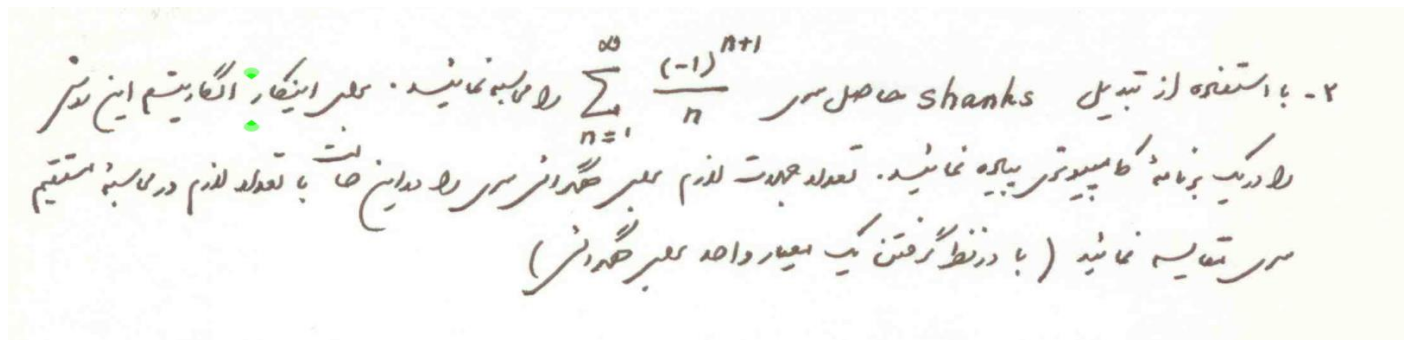 ۲- با استفاده از تبدیل shanks حاصل سری $\sum_{n=1}^{\infty} \frac{(-1)^{n+1}}{n}$ را محاسبه نمائید. برای اینکار الگاریتم این روش
را در یک برنامهٔ کامپیوتری پیاده نمائید. تعداد جملات لازم برای همگرائی سری را در این حالت با تعداد لازم در محاسبهٔ مستقیم
سری مقایسه نمائید (با در نظر گرفتن یک معیار واحد برای همگرائی)